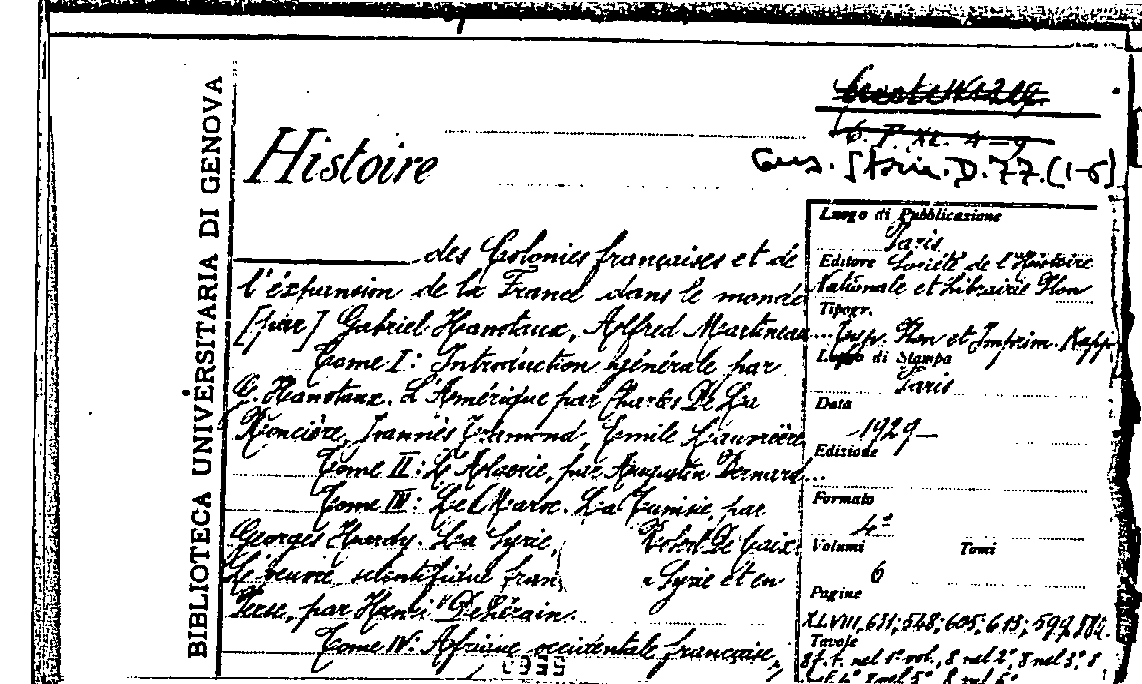 BIBLIOTECA UNIVERSITARIA DI GENOVA
6. P. XL. 4-9
Cons. Storia. D. 77. (1-6)
Histoire
des Colonies françaises et de
l'éxpansion de la France dans le monde
[par] Gabriel Hanotaux, Alfred Martineau...
Tome I: Introduction générale par
G. Hanotaux. L'Amérique par Charles De La
Roncière, Joannès Tramond, Emile Lauvrière
Tome II: L'Algerie, par Augustin Bernard...
Tome III: Le Maroc. La Tunisie, par
Georges Hardy. La Syrie, Robert De Caix.
L'oeuvre scientifique fran Syrie et en
Perse, par Henri Dehérain.
Tome IV: Afrique occidentale française,
Luogo di Pubblicazione
Paris
Editore Société de l'Histoire
Nationale et Librairie Plon
Tipogr.
Imp. Plon et Imprim. Kapp
Luogo di Stampa
Paris
Data
1929
Edizione
Formato
4º
Volumi Tomi
6
Pagine
XLVIII, 631; 548; 605; 613; 599,
Tavole
8 f. t. nel 1º vol., 8 nel 2º, 8 nel 3º, 8
nel 4º, 8 nel 5º, 8 nel 6º